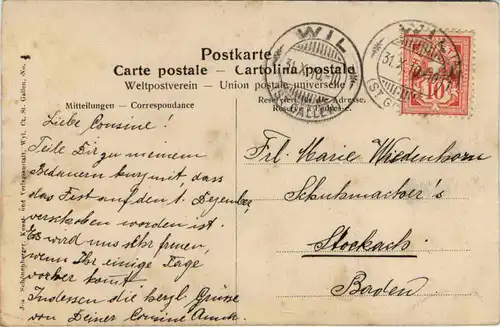 Postkarte
Carte postale – Cartolina postale
Weltpostverein – Union postale universelle
Mitteilungen – Correspondance
WIL
31.X.
(ST. GALLEN)
WIL
31.X.
(ST. G
10
Liebe Cousine!
Teile Dir zu meinem
Bedauern kurz mit dass
das Fest auf den 1. Dezember
verschoben worden ist.
Es wird uns sehr freuen,
wenn Ihr einige Tage
vorher kommt
Indessen die herzl. Grüsse
von Deiner Cousine
Frl. Marie Wiedenhorn
Schuhmacher's
Stockach
Baden
Kunst- und Verlagsanstalt, Wyl, Ct. St. Gallen, No.